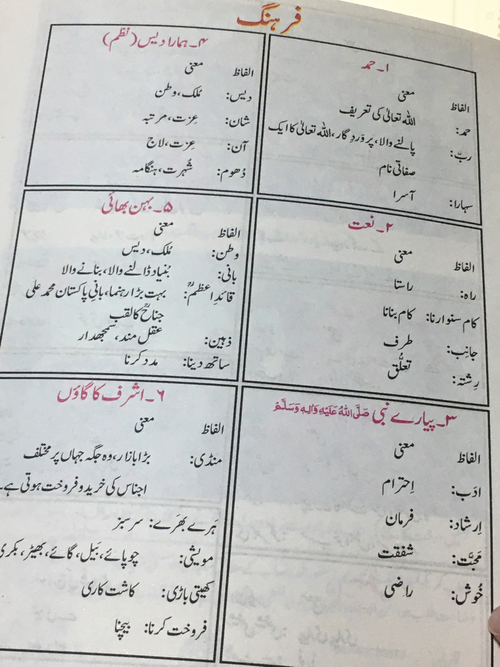 فرہنگ
۱۔ حمد
الفاظ معنی
حمد: اللہ تعالیٰ کی تعریف
ربّ: پالنے والا، پروردِگار، اللہ تعالیٰ کا ایک
صفاتی نام
سہارا: آسرا
۲۔ نعت
الفاظ معنی
راہ: راستا
کام سنوارنا: کام بنانا
جانِب: طرف
رِشتہ: تعلُّق
۳۔ پیارے نبی صَلَّی اللہُ عَلَیْہِ وَاٰلِہٖ وَسَلَّمَ
الفاظ معنی
ادَب: اِحترام
اِرشاد: فرمان
مَحبّت: شفقت
خُوش: راضی
۴۔ ہمارا دیس (نظم)
الفاظ معنی
دیس: مُلک، وطن
شان: عِزت، مرتبہ
آن: عِزت، لاج
دُھوم: شُہرت، ہنگامہ
۵۔ بہن بھائی
الفاظ معنی
وطن: مُلک، دیس
بانی: بُنیاد ڈالنے والا، بنانے والا
قائدِ اعظمؒ: بہت بڑا رہنما، بانیِ پاکستان محمد علی
جناحؒ کا لقب
ذہین: عقل مند، سمجھدار
ساتھ دینا: مدد کرنا
۶۔ اشرف کا گاؤں
الفاظ معنی
منڈی: بڑا بازار، وہ جگہ جہاں پر مختلف
اجناس کی خرید و فروخت ہوتی ہے۔
ہَرے بھَرے: سرسبز
مویشی: چوپائے، بَیل، گائے، بھیڑ، بکری
کھیتی باڑی: کاشت کاری
فروخت کرنا: بیچنا